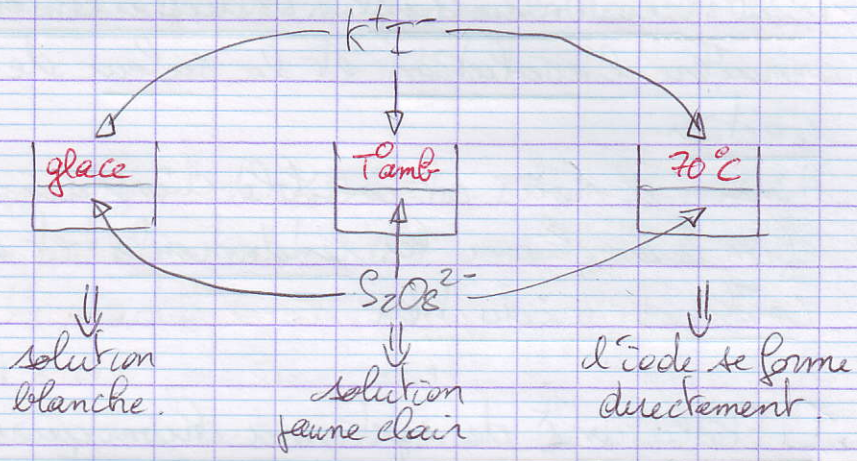 K⁺I⁻
glace
T°amb
70°C
S₂O₈²⁻
solution
blanche.
solution
jaune clair
l'iode se forme
directement.